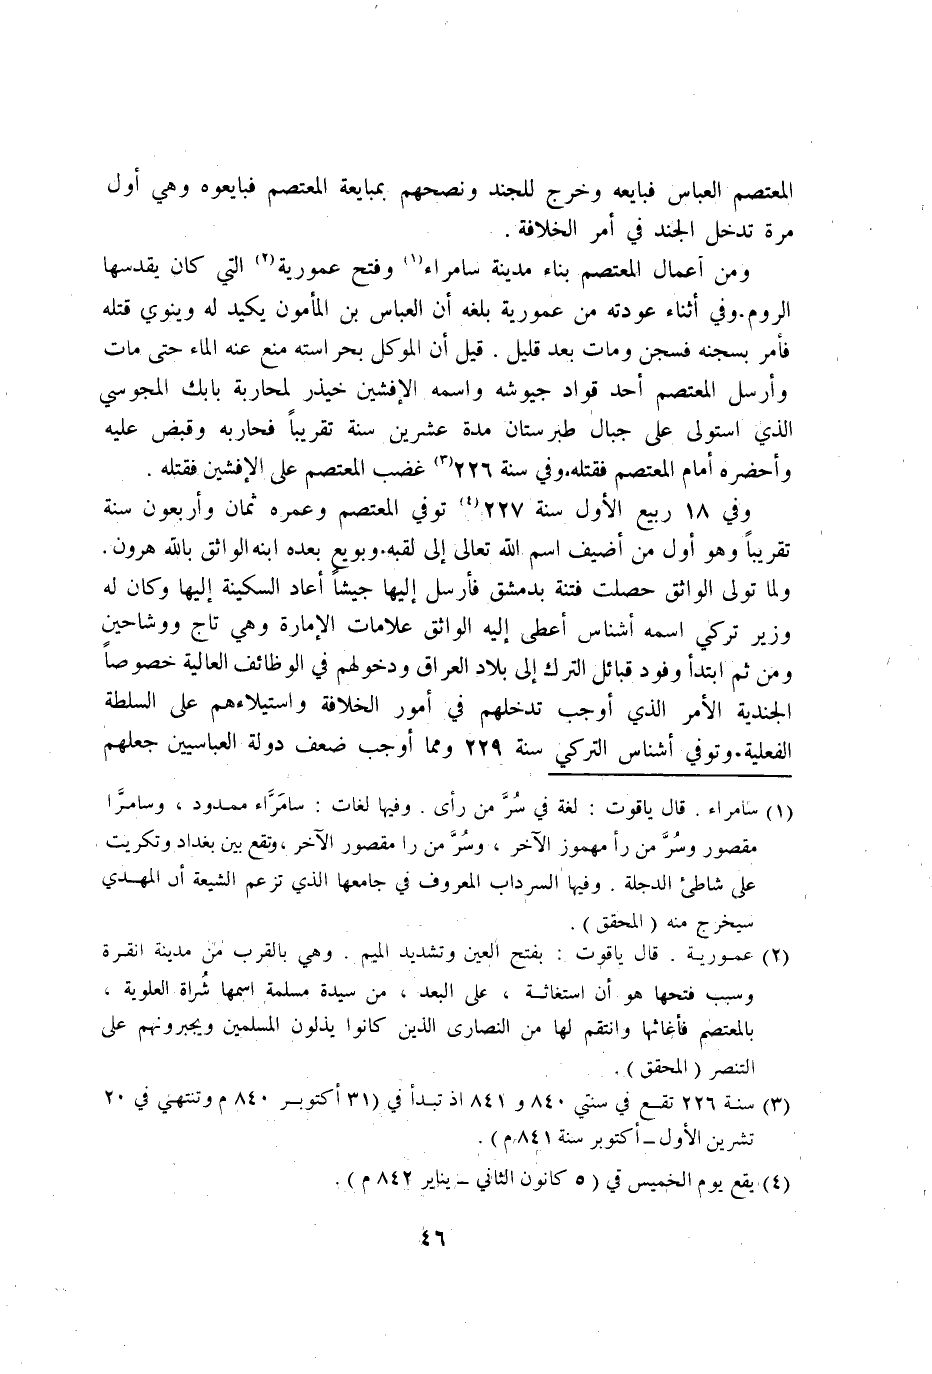 المعتصم العباس فبايعه وخرج للجند ونصحهم بمبايعة المعتصم فبايعوه وهي أول
مرة تدخل الجند في أمر الخلافة .
ومن أعمال المعتصم بناء مدينة سامراء(١) وفتح عمورية(٢) التي كان يقدسها
الروم.وفي أثناء عودته من عمورية بلغه أن العباس بن المأمون يكيد له وينوي قتله
فأمر بسجنه فسجن ومات بعد قليل . قيل أن الموكل بحراسته منع عنه الماء حتى مات
وأرسل المعتصم أحد قواد جيوشه واسمه الإفشين خيذر لمحاربة بابك المجوسي
الذي استولى على جبال طبرستان مدة عشرين سنة تقريباً فحاربه وقبض عليه
وأحضره أمام المعتصم فقتله.وفي سنة ٢٢٦(٣) غضب المعتصم على الإفشين فقتله .
وفي ١٨ ربيع الأول سنة ٢٢٧(٤) توفي المعتصم وعمره ثمان وأربعون سنة
تقريباً وهو أول من أضيف اسم الله تعالى إلى لقبه.وبويع بعده ابنه الواثق بالله هرون.
ولما تولى الواثق حصلت فتنة بدمشق فأرسل إليها جيشاً أعاد السكينة إليها وكان له
وزير تركي اسمه أشناس أعطى إليه الواثق علامات الإمارة وهي تاج ووشاحين
ومن ثم ابتدأ وفود قبائل الترك إلى بلاد العراق ودخولهم في الوظائف العالية خصوصاً
الجندية الأمر الذي أوجب تدخلهم في أمور الخلافة واستيلاءهم على السلطة
الفعلية.وتوفي أشناس التركي سنة ٢٢٩ ومما أوجب ضعف دولة العباسيين جعلهم
(١) سامراء . قال ياقوت : لغة في سُرَّ من رأى . وفيها لغات : سامَرَّاء ممدود ، وسامرَّا
مقصور وسُرَّ من رأ مهموز الآخر ، وسُرَّ من را مقصور الآخر ،وتقع بين بغداد وتكريت
على شاطئ الدجلة . وفيها السرداب المعروف في جامعها الذي تزعم الشيعة أن المهدي
سيخرج منه ( المحقق ) .
(٢) عمورية . قال ياقوت : بفتح العين وتشديد الميم . وهي بالقرب من مدينة انقرة
وسبب فتحها هو أن استغاثة ، على البعد ، من سيدة مسلمة اسمها شُراة العلوية ،
بالمعتصم فأغاثها وانتقم لها من النصارى الذين كانوا يذلون المسلمين ويجبرونهم على
التنصر ( المحقق ) .
(٣) سنة ٢٢٦ تقع في سنتي ٨٤٠ و ٨٤١ اذ تبدأ في (٣١ أكتوبر ٨٤٠ م وتنتهي في ٢٠
تشرين الأول ـ أكتوبر سنة ٨٤١م ) .
(٤) يقع يوم الخميس في ( ٥ كانون الثاني ـ يناير ٨٤٢ م ) .
٤٦